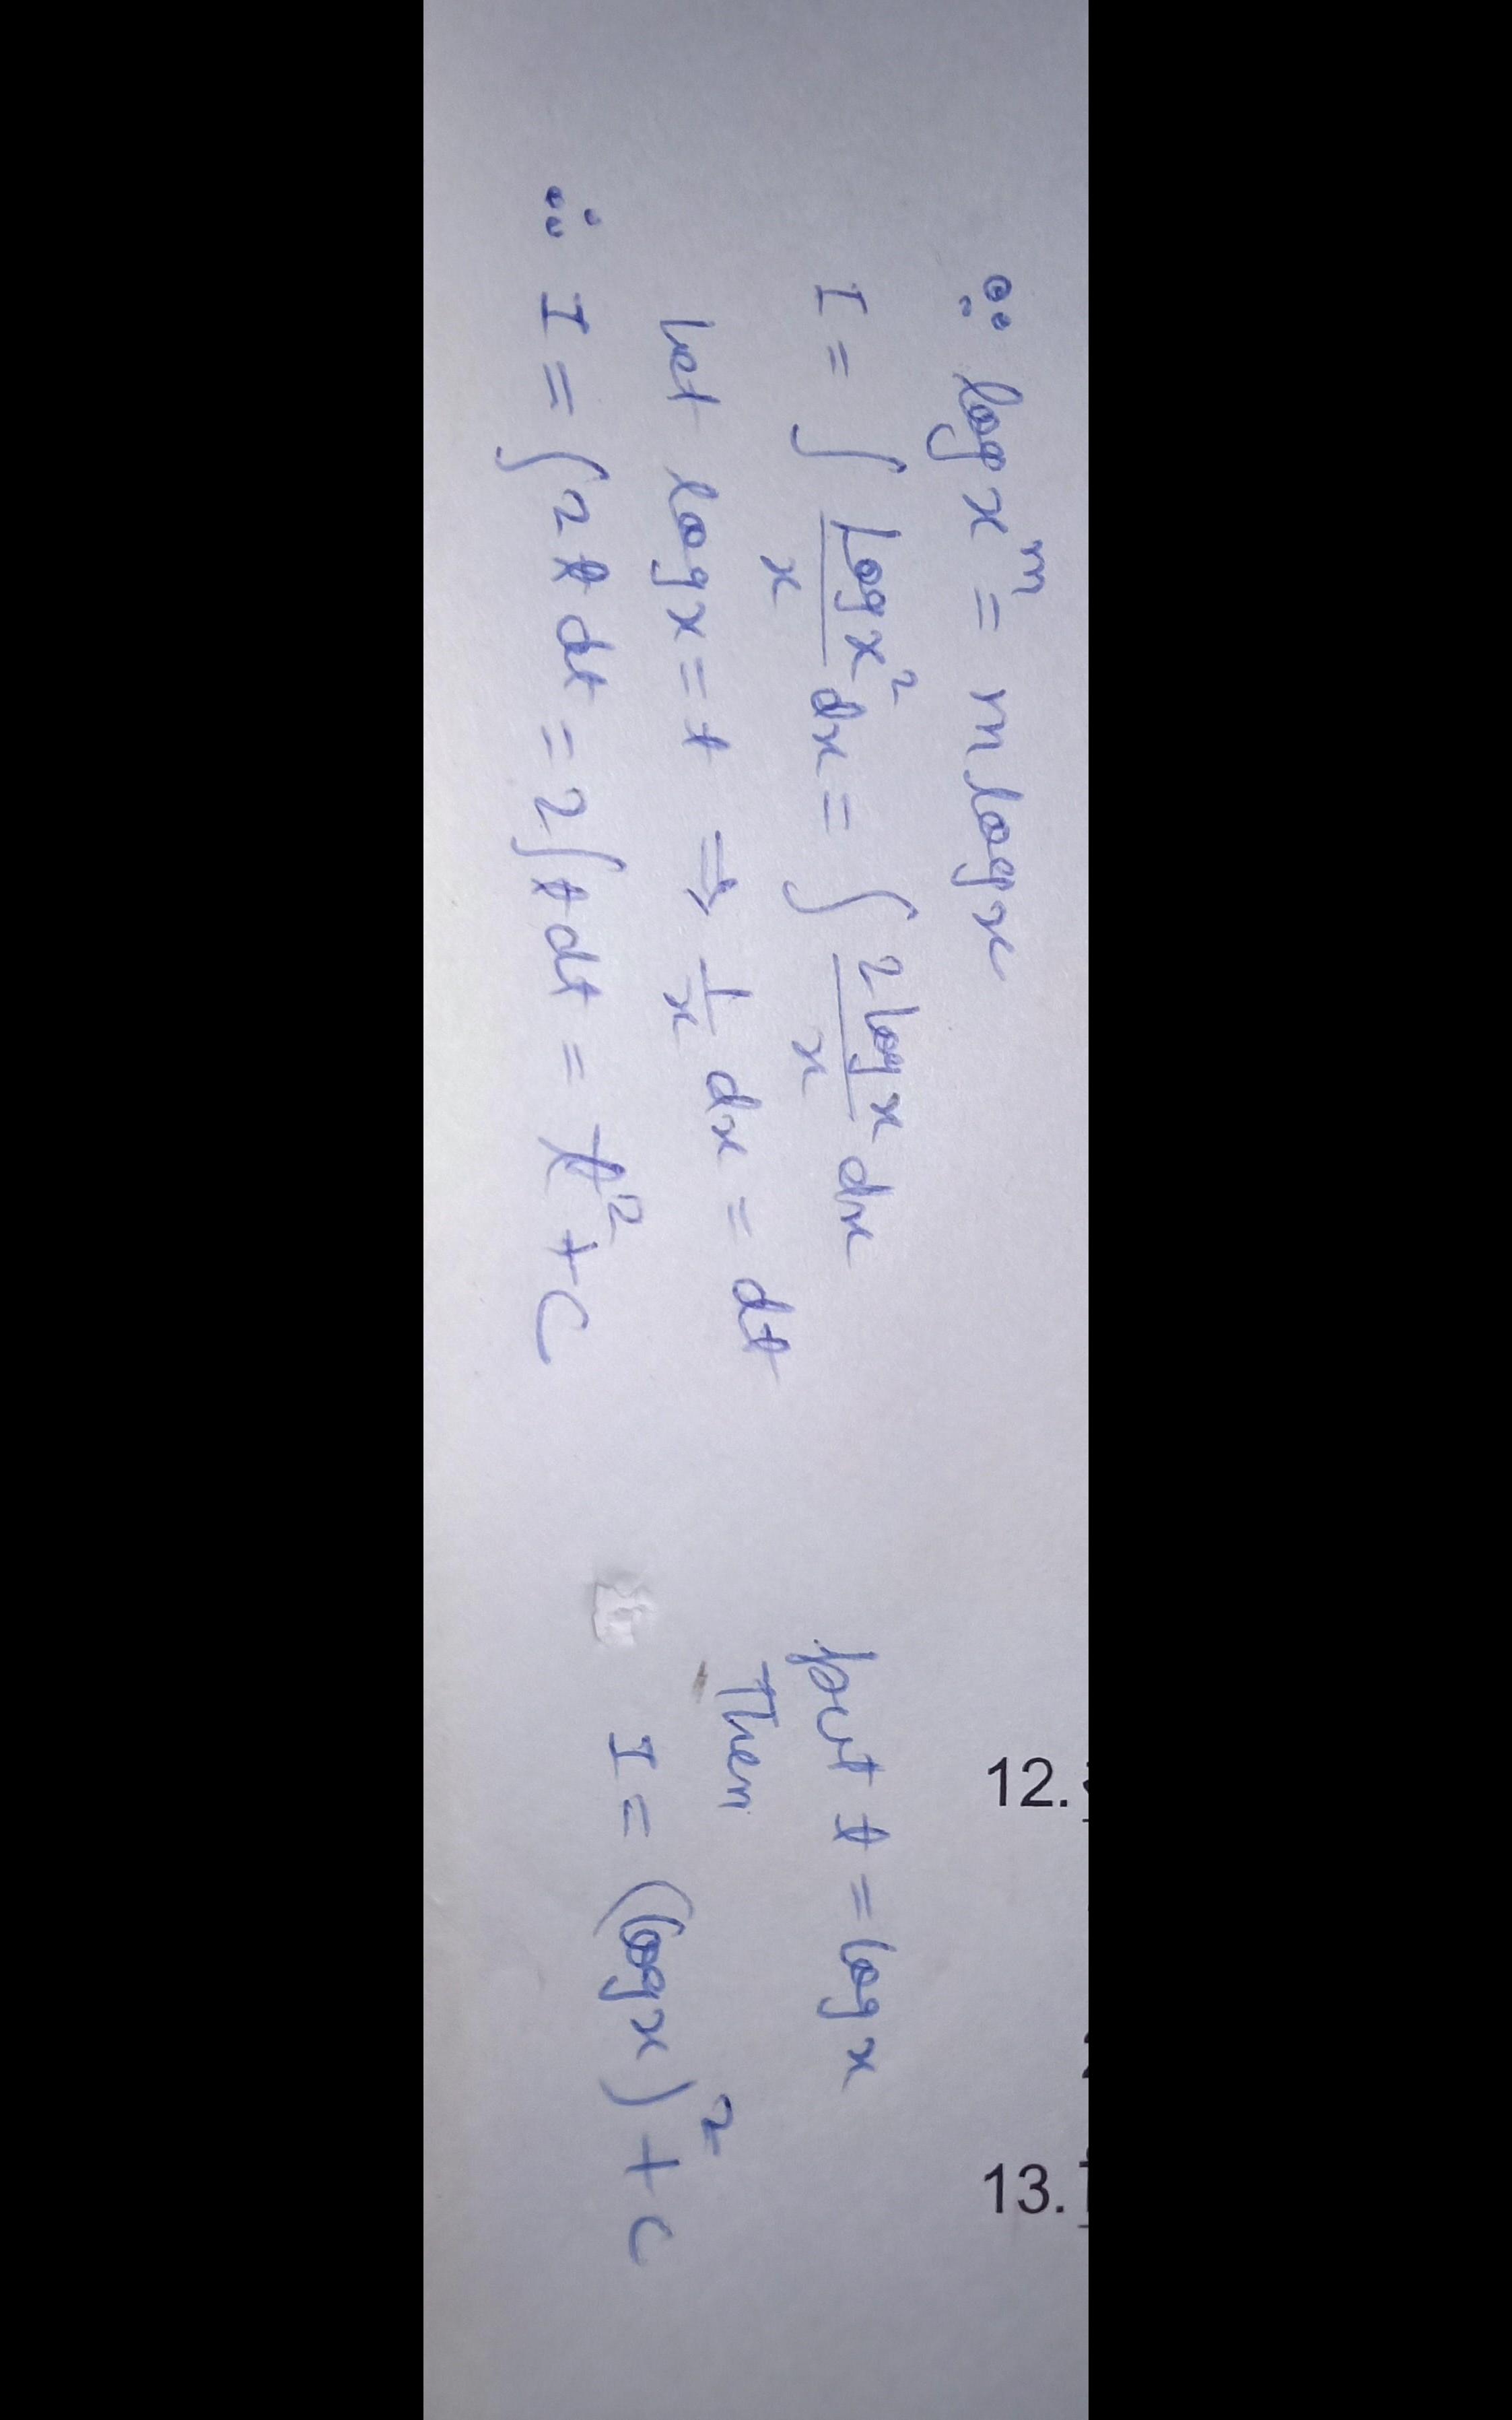 ∵ log x^m = m log x
I = ∫ log x² / x dx = ∫ 2 log x / x dx
Let log x = t ⇒ 1/x dx = dt
∴ I = ∫ 2 t dt = 2 ∫ t dt = t² + C
12.
13.
put t = log x
Then
I = (log x)² + c